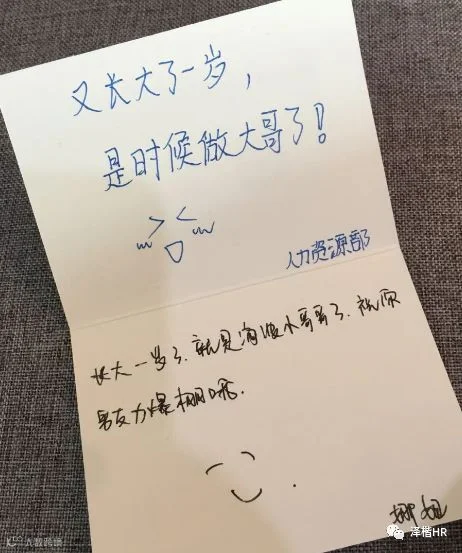 又长大了一岁，
是时候做大哥了！
人力资源部
长大一岁了，就是海淀小哥哥了，祝愿
男友力爆棚哦.
娜姐
泽楷HR
大数跨境